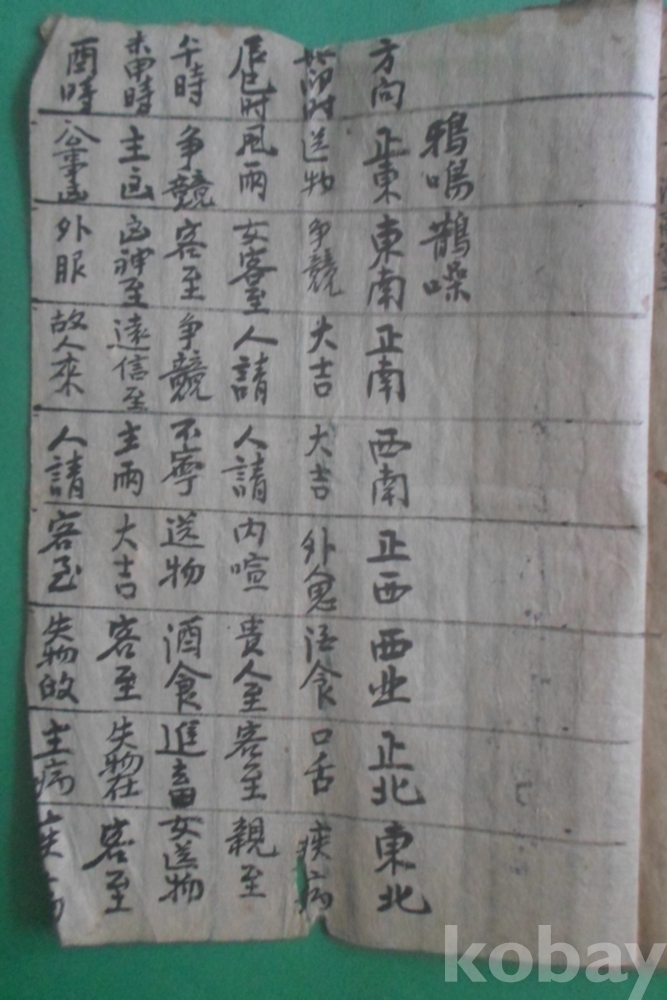 鴉鳴鵲噪
方向 正東 東南 正南 西南 正西 西北 正北 東北
寅卯时 送物 争競 大吉 大吉 外人 酒食 口舌 疾病
辰巳时 風雨 女客至 人請 人請 内喧 貴人至 客至 親至
午時 争競 客至 争競 不寧 送物 酒食 進畜 女送物
未申時 主凶 凶神至 遠信至 主雨 大吉 客至 失物在 客至
酉時 公事凶 外服 故人來 人請 客至 失物的 主病
kobay